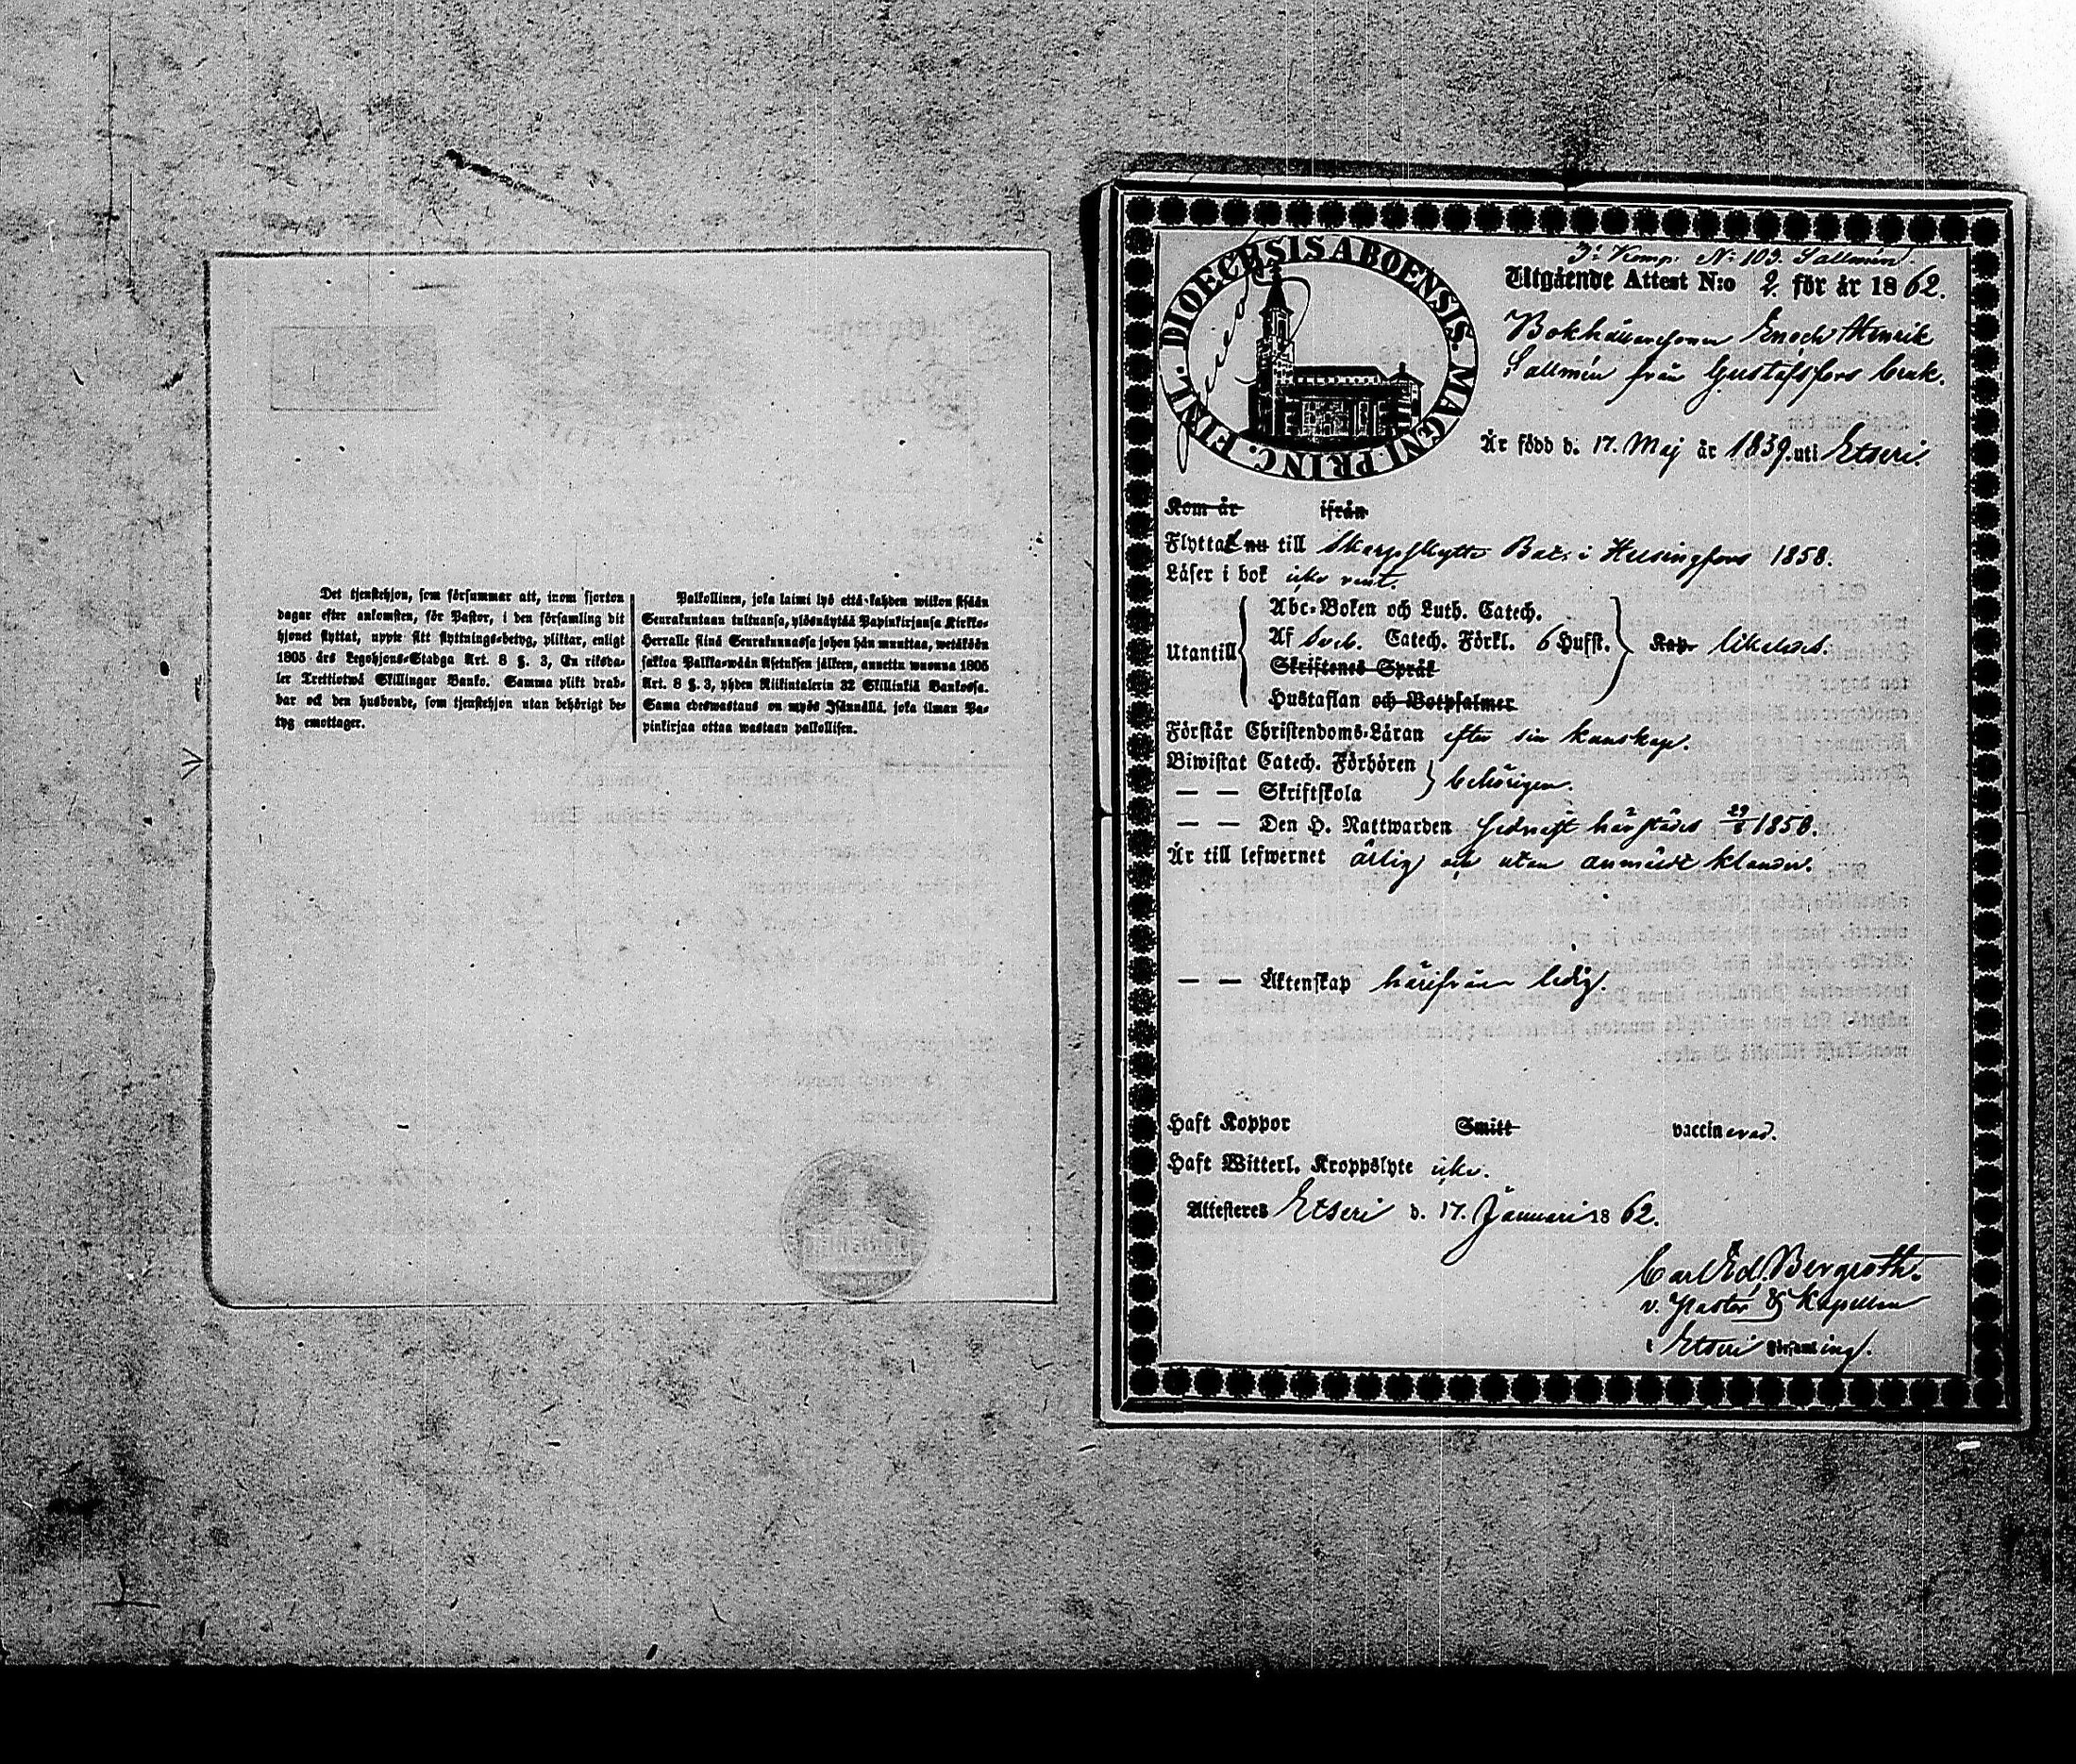 Det tjenstehjon, som försummar att, inom fjorton
dagar efter ankomsten, för Pastor, i den församling dit
hjonet flyttat, uppte sitt flyttnings-betyg, pliktar, enligt
1805 års Legohjons-Stadga Art. 8 §. 3, En riksda-
ler Trettiotwå Skillingar Banko. Samma plikt drab-
bar ock den husbonde, som tjenstehjon utan behörigt be-
tyg emottager.
Palkollinen, joka laimi lyö että kahden wiikon sisään
Seurakuntaan tultuansa, ylösnäyttää Papinkirjansa Kirkko-
Herralle siinä Seurakunnassa johon hän muuttaa, wetäköön
sakkoa Palkka-wään Asetuksen jälkeen, annettu wuonna 1805
Art. 8 §. 3, yhden Riikintalerin 32 Skillinkiä Bankossa.
Sama edeswastaus on myös Isännällä, joka ilman Pa-
pinkirjaa ottaa wastaan palkollisen.
DIOECESIS ABOENSIS. MAGNI. PRINC. FINL.
3: Komp. N: 103. Sallmén
Utgående Attest N:o 2. för år 1862.
Bokhållaresonen Enoch Henrik
Sallmén från Gustafsfors bruk.
Är född d. 17. Maj år 1839. uti Etseri.
Kom år ifrån
Flyttat nu till Skarpskytte Bat. i Helsingfors 1858.
Läser i bok icke rent.
Abc-Boken och Luth. Catech.
Utantill Af Sveb. Catech. Förkl. 6 Hufst. Kap. likaledes.
Skriftenes Språk
Hustaflan och Botpsalmer
Förstår Christendoms-Läran efter sin kunskap.
Biwistat Catech. Förhören
— — Skriftskola behörigen.
— — Den H. Nattwarden sednast härstädes 29/8 1858.
Är till lefwernet ärlig och utan anmärkt klander.
— — Äktenskap härifrån ledig.
Haft Koppor Smitt vaccinerad.
Haft Witterl. Kroppslyte icke.
Attesteres Etseri d. 17. Januari 1862.
Carl Ed. Bergroth.
v. Pastor & Kapellan
i Etseri Församling.